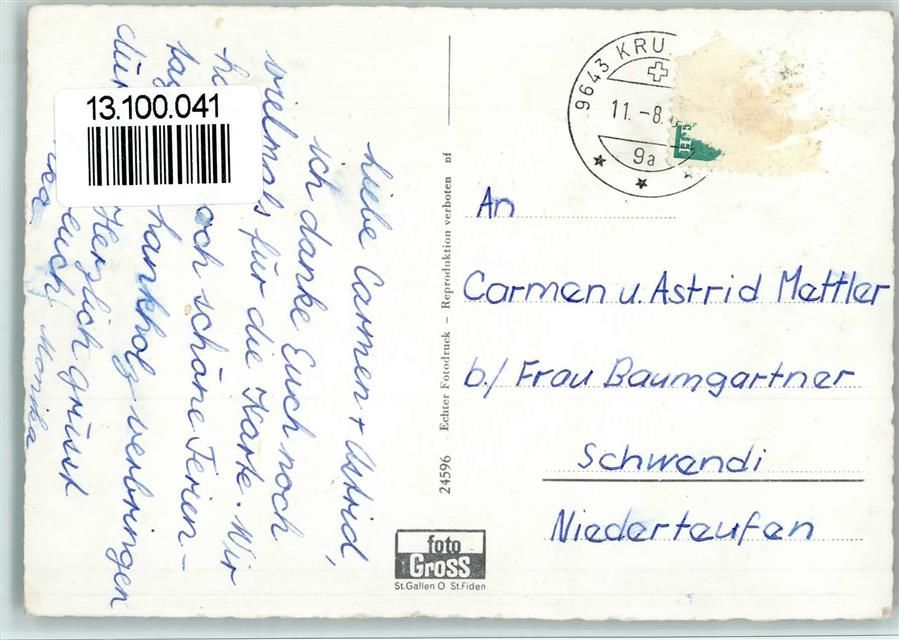 liebe Carmen + Astrid,
ich danke Euch noch
vielmals für die Karte. Wir
noch schöne Ferien-
verbringen
Herzlich grüsst
euch Monika
13.100.041
24596 Echter Fotodruck – Reproduktion verboten nf
foto
Gross
St.Gallen O St.Fiden
9643 KRU
11. -8.
9a
An
Carmen u. Astrid Mettler
b./ Frau Baumgartner
Schwendi
Niederteufen